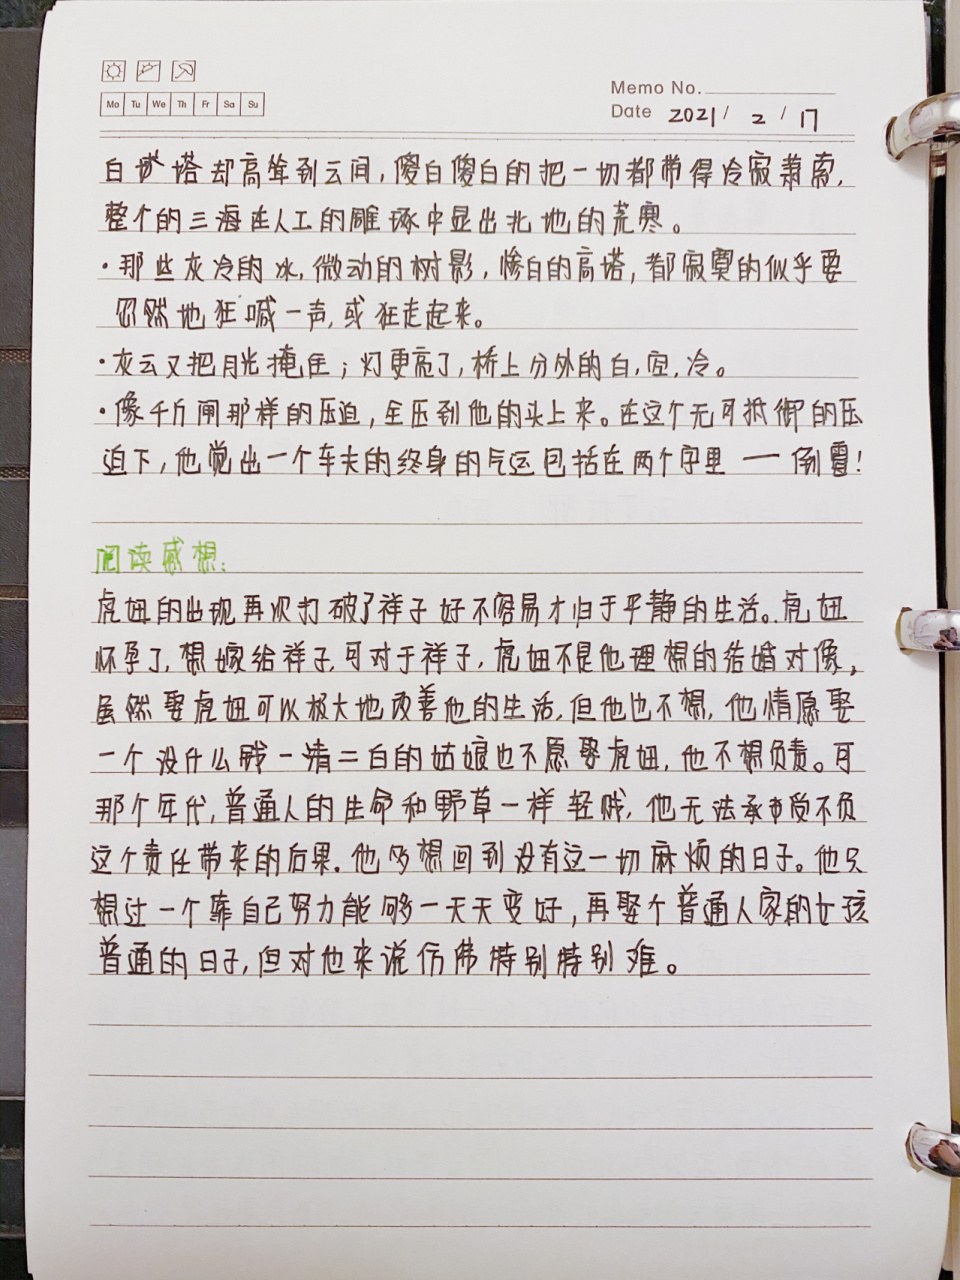 Mo Tu We Th Fr Sa Su
Memo No.
Date 2021 / 2 / 17
白塔却高耸到云间,傻白傻白的把一切都带得冷寂萧索,
整个的三海在人工的雕琢中显出北地的荒寒。
·那些灰冷的冰,微动的树影,惨白的高塔,都寂寞的似乎要
忽然地狂喊一声,或狂走起来。
·灰云又把月光掩住;灯更亮了,桥上分外的白,空,冷。
·像千斤闸那样的压迫,全压到他的头上来。在这个无可抵御的压
迫下,他觉出一个车夫的终身的气运包括在两个字里——倒霉!
阅读感想:
虎妞的出现再次打破了祥子好不容易才归于平静的生活。虎妞
怀孕了,想嫁给祥子,可对于祥子,虎妞不是他理想的结婚对像,
虽然娶虎妞可以极大地改善他的生活,但他也不想,他情愿娶
一个没什么钱一清二白的姑娘也不愿娶虎妞,他不想负责。可
那个年代,普通人的生命和野草一样轻贱,他无法承受不负
这个责任带来的后果。他多想回到没有这一切麻烦的日子。他只
想过一个靠自己努力能够一天天变好,再娶个普通人家的女孩
普通的日子,但对他来说仿佛特别特别难。